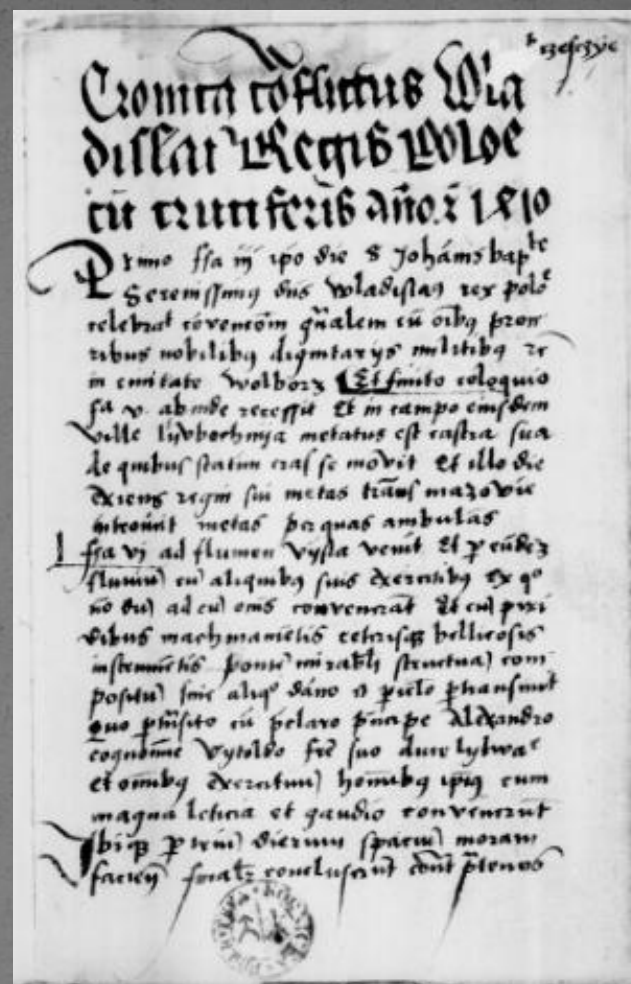 rzeschzÿe
Cronica cōflictus Wla
dislai Regis Poloe
cū cruciferis año. 1410
Primo fīa iij ipō die S Johānis bapᵗᵉ
Serenissimꝰ dn̄s Wladislaꝰ rex poloͤ
celebraᵗ cōventōm gn̄alem cū oībꝰ proce
ribus nobilibꝰ dignitarÿs militibꝰ
in civitate Wolborz Et finito coloquio
fīa v. abinde recessit Et in campo eiusdem
ville lÿvbochnÿa metatus est castra sua
de quibus statim cras se movit Et illo die
exiens regni sui metas trāns mazovie
introivit metas per quas ambulās
fīa vj ad flumen Vÿsla venit Et ꝑ eūdēz
fluviū cū aliquibꝰ suis exercitibꝰ ex qͦ
nō dū ad eū om̄s convenerāt Et cū pixi
dibus machinamētis ceterisqꝫ bellicosis
instrumētis ponte mirabᶩi structura com
positū sine aliqͦ dāno et ꝑicᶩo ꝑtransivit
Quo ꝑtn̄sito cū p̄claro p̄ncipe Alexandro
cognomīe Vÿtoldo frē suo duce lÿtwaᵉ
et om̄ibꝰ exercituū hom̄ibꝰ ip̄iꝰ cum
magna leticia et gaudio convenerūt
Ibiqꝫ ꝑ triū dierum spaciū moram
faciēn̄ conclusert cont̄ p̄tenos